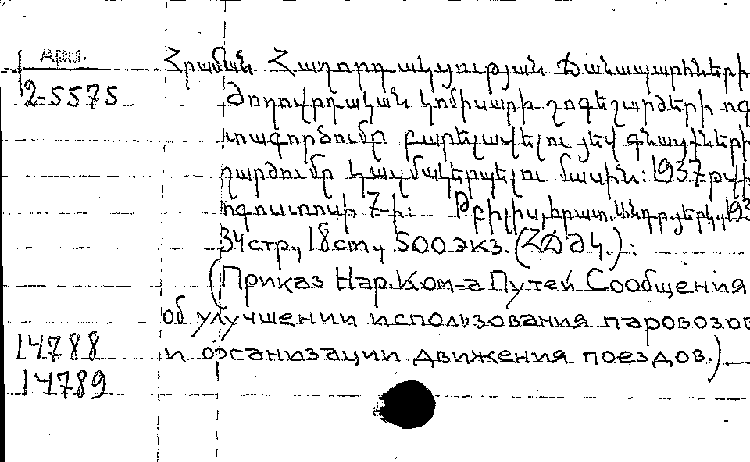 Арм.
2-5575
Հրաման Հաղորդակցության Ճանապարհների
Ժողովրդական կոմիսարի շոգեշարժերի
տագործումը բարելավելու յեվ գնացքների
շարժումը կազմակերպելու մասին: 1937 թվի
ոգոստոսի 7-ի: Թբիլիսի,
34 стр., 18 см, 500 экз. (ՀԶԺԿ):
(Приказ Нар.Ком-а Путей Сообщения
об улучшении использования паровозов
и организации движения поездов.)
14788
14789